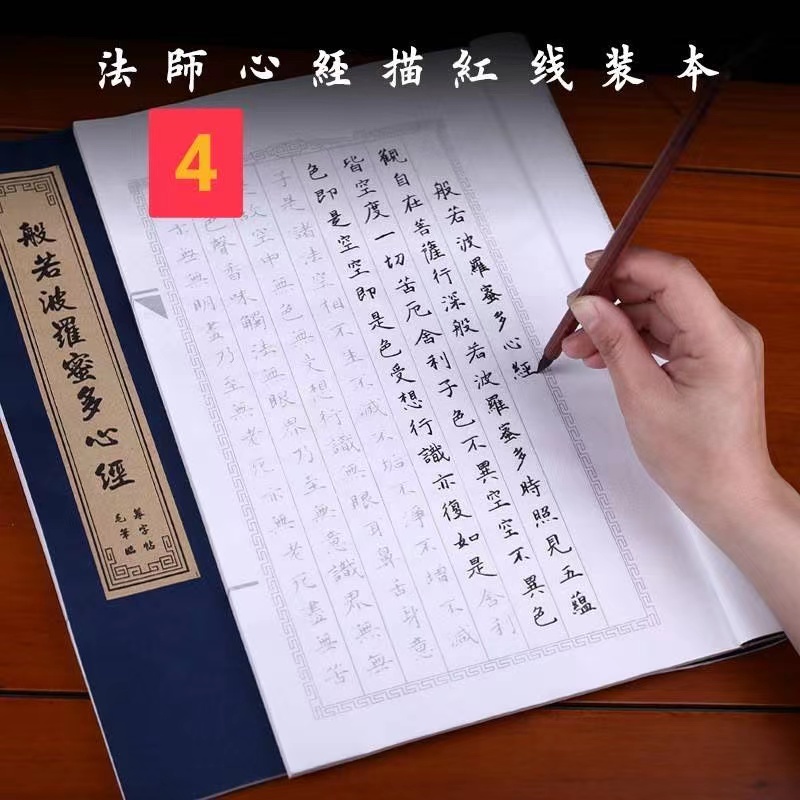 法師心経描紅线装本
4
般若波羅蜜多心經
毛筆臨摹字帖
般若波羅蜜多心經
觀自在菩薩行深般若波羅蜜多時照見五蘊
皆空度一切苦厄舍利子色不異空空不異色
色即是空空即是色受想行識亦復如是舍利
子是諸法空相不生不滅不垢不淨不增不減
故空中無色無受想行識無眼耳鼻舌身意
色聲香味觸法無眼界乃至無意識界無無
無明盡乃至無老死亦無老死盡無苦